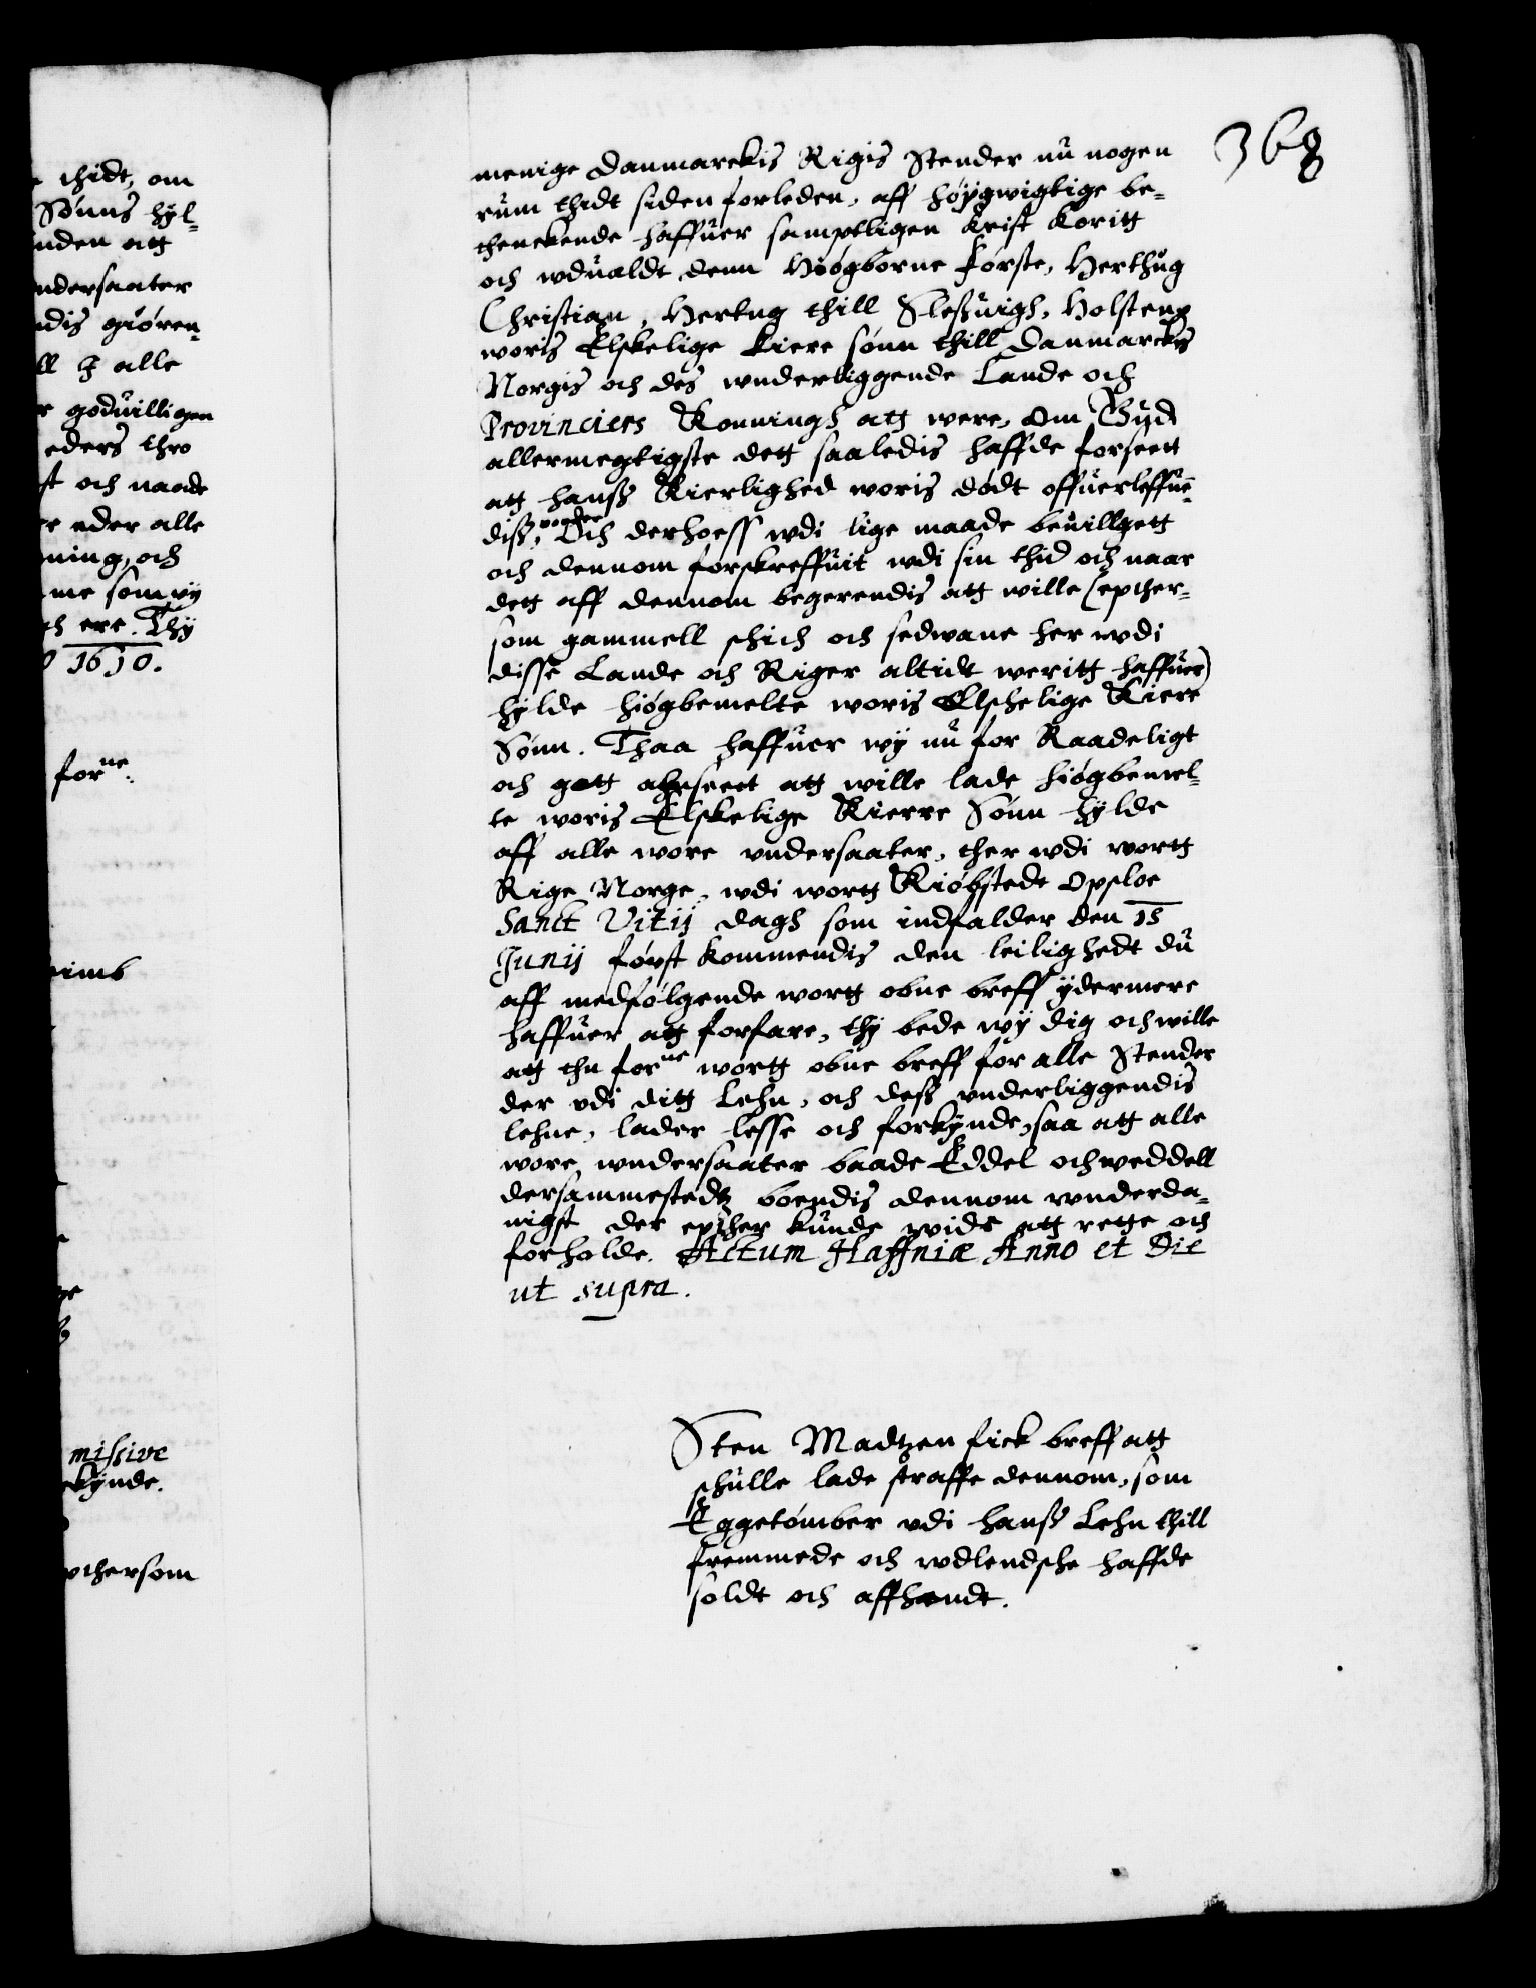 e thidt, om
Sønns hÿl-
inden att
ndersaater
ndis giøren-
ll I alle
r goduilligen
eders thro
st och naade
er eder alle
ning, och
me som wÿ
ch ere. Thÿ
1610.
forne:
eimb
missive
kÿnde.
ptersom
368
menige Danmarckis Rigis Stender nu nogen
rum thidt siden forleden, aff høÿgwigtige be-
thenckende haffuer samptligen Keist Koritt
och wduældt denn Høøgborne Første, Herthug
Christian, Hertug thill Sleßuigh, Holstenn
woris Elskelige kiere sønn thill Danmarckis
Norgis och des wnderliggende Lande och
Provinciers Konningh att were, Om Gud
allermegtigste dett saaledis haffde forseett
att hanß Kierlighed woris dødt offuerleffue-
diß worder, Och derhoess wdi lige maade beuillgett
och dennom forskreffuit wdi sin thid och naar
dett aff dennom begerendis att wille (epther-
som gammell schich och sedwane her wdi
disse Lande och Riger altidt weritt haffuer)
hÿlde høgbemelte woris Elschelige Kiere
Sønn. Thaa haffuer wÿ nu for Raadeligt
och gott anseeet att wille lade høgbemel-
te woris Elskelige Kierre Sønn hÿlde
aff alle wore vndersaater, ther wdi wortt
Rige Norge, wdi wortt Kiøbstede Opsloe
Sanct Vitij dagh som indfalder den 15
Junij først kommendis den leilighedt du
aff medfølgende wortt obne breff ÿdermere
haffuer att forfare, thÿ bede wÿ dig och wille
att thu forne wortt obne breff for alle Stender
der vdi ditt Lehn, och deß vnderliggendis
lehne, lader lesse och forkÿnde, saa att alle
wore wndersaater baade Eddel och weddell
dersammestedtz boendis dennom wnderda-
nigst der epther kunde wide att rette och
forholde. Actum Haffniæ Anno et Die
ut supra.
Sten Madtzen fick breff att
schulle lade straffe dennom, som
Eggetømber vdi hanß Lehn thill
fremmede och wdlendsche haffde
soldt och affhendt.